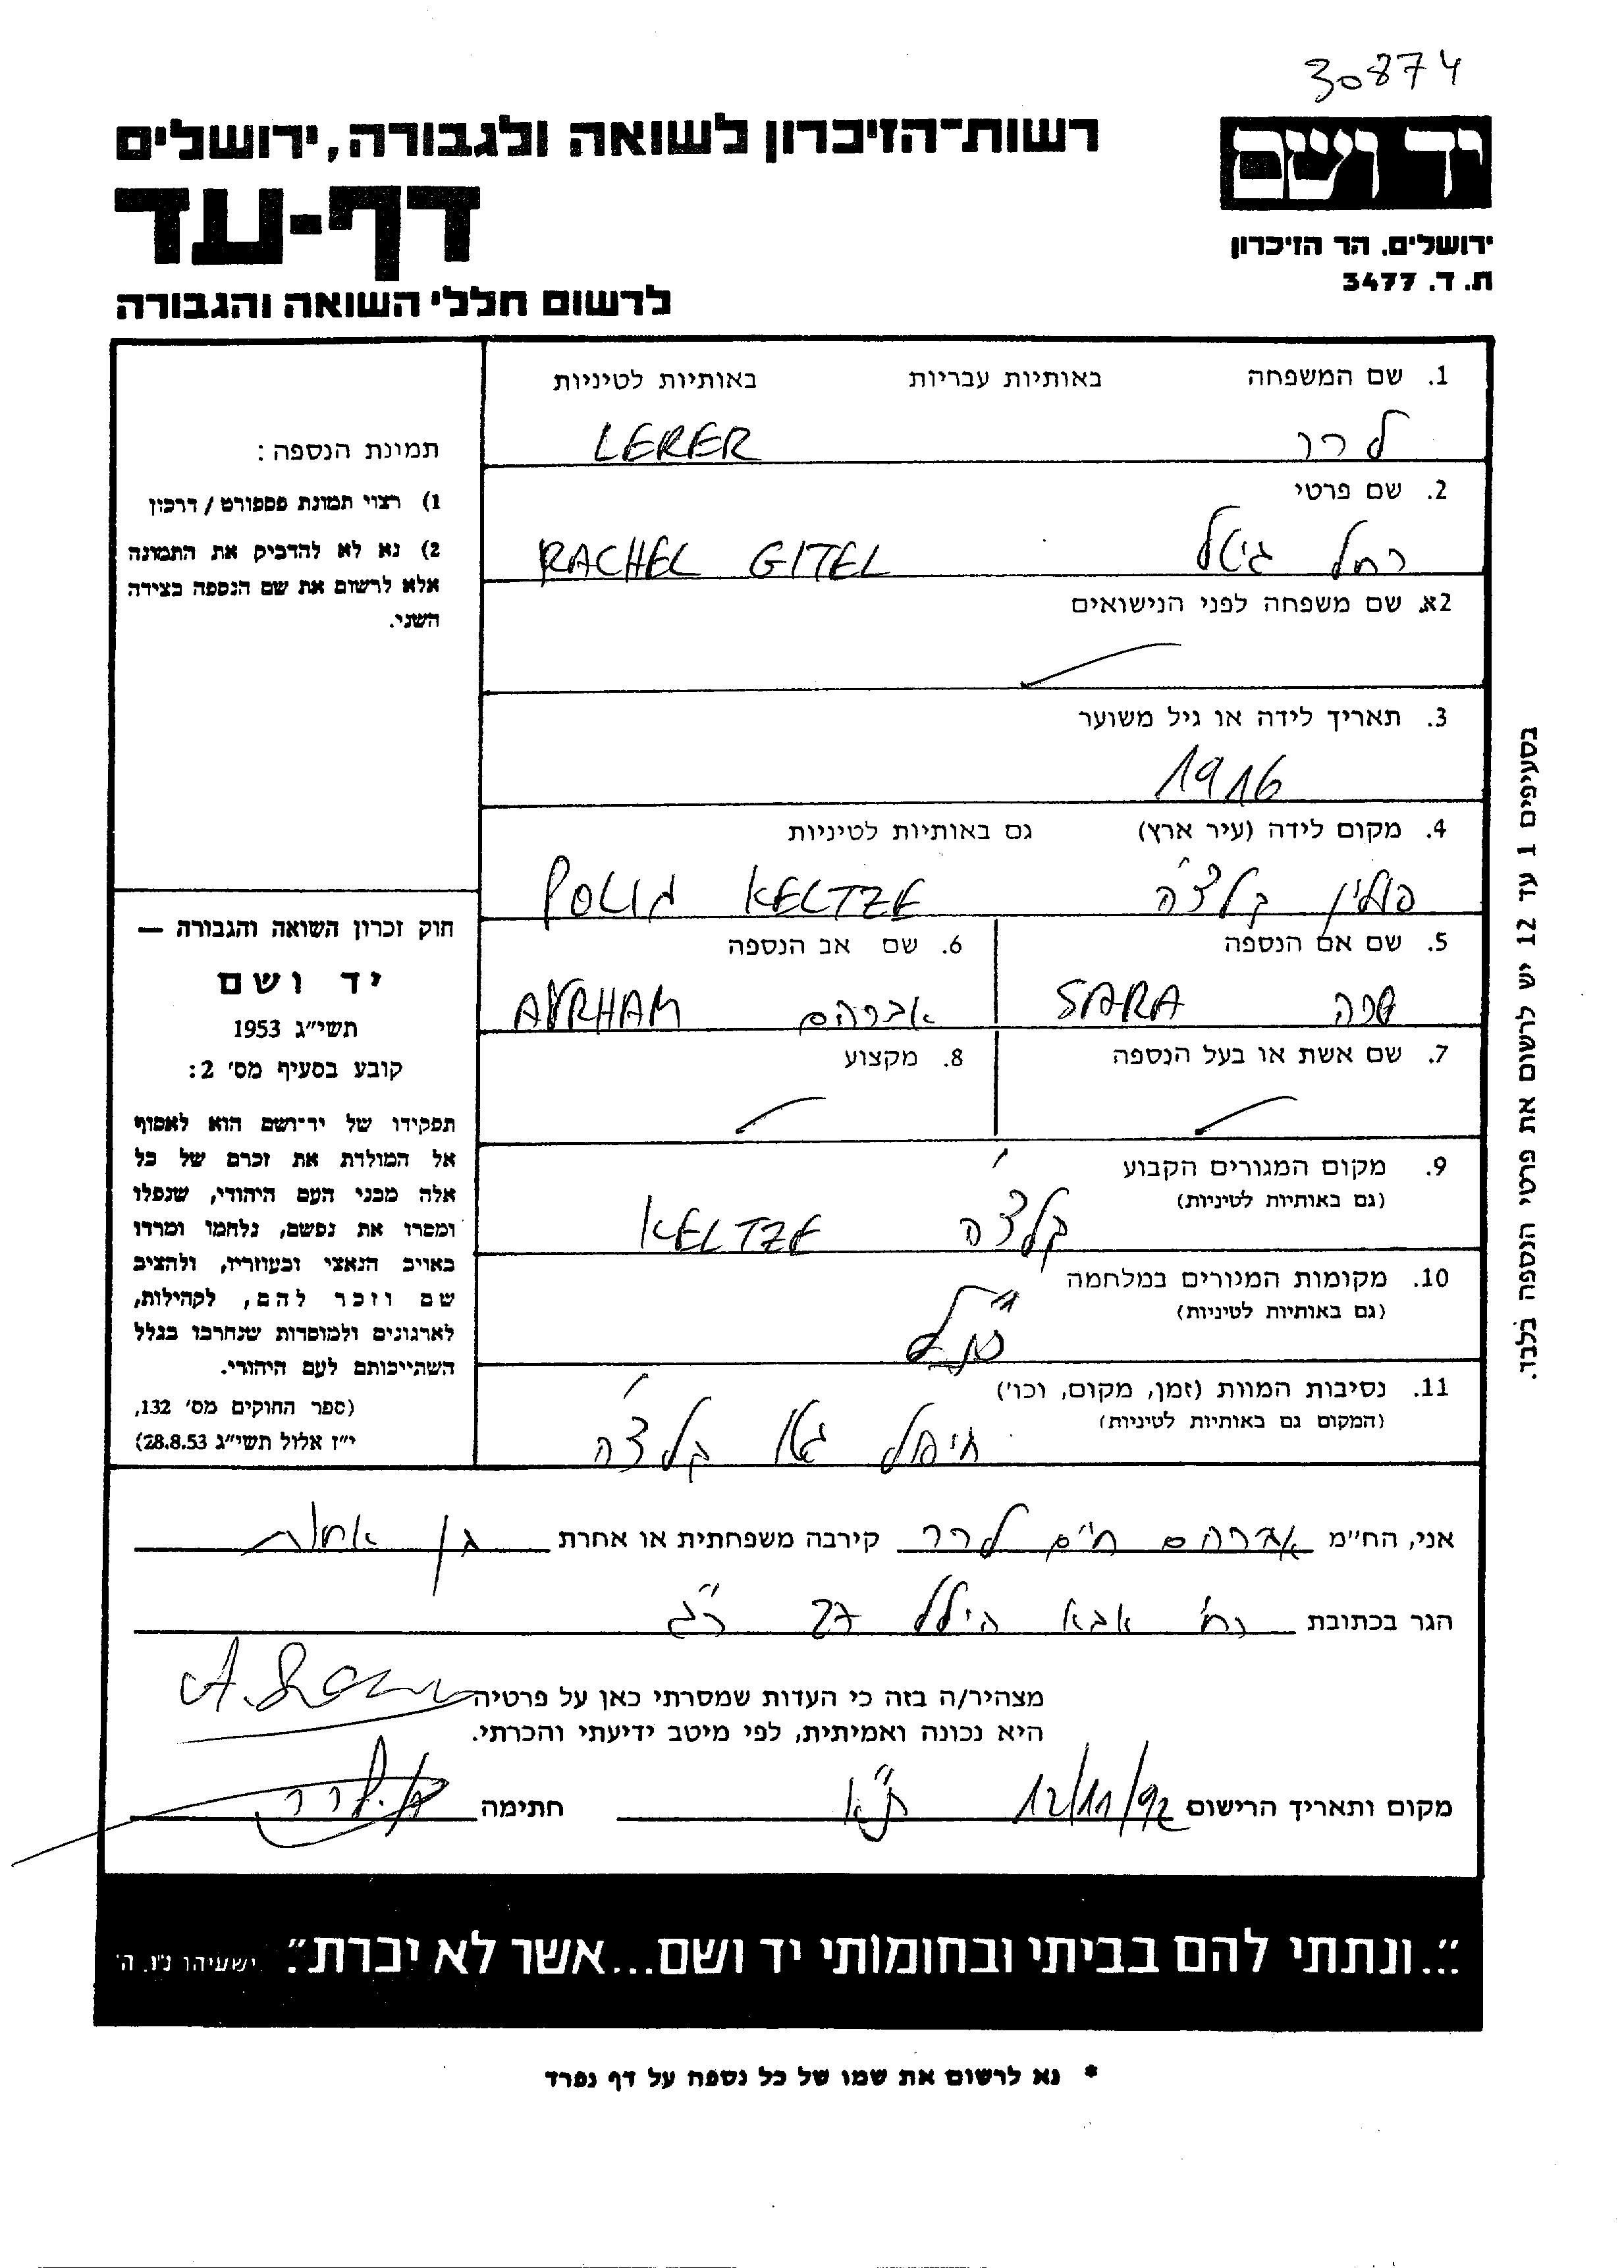 30874
יד ושם
רשות־הזיכרון לשואה ולגבורה, ירושלים
דף-עד
ירושלים. הר הזיכרון
ת. ד. 3477
לרשום חללי השואה והגבורה
1. שם המשפחה באותיות עבריות באותיות לטיניות
לרר LERER
2. שם פרטי
רחל גיטל RACHEL GITEL
2א. שם משפחה לפני הנישואים
3. תאריך לידה או גיל משוער
1916
4. מקום לידה (עיר ארץ) גם באותיות לטיניות
פולין קלצ'ה KELTZE
5. שם אם הנספה 6. שם אב הנספה
שרה SARA אברהם AVRHAM
7. שם אשת או בעל הנספה 8. מקצוע
9. מקום המגורים הקבוע
(גם באותיות לטיניות)
קלצ'ה KELTZE
10. מקומות המגורים במלחמה
(גם באותיות לטיניות)
כנ"ל
11. נסיבות המוות (זמן, מקום, וכו')
(המקום גם באותיות לטיניות)
חיסול גטו קלצ'ה
תמונת הנספה:
1) רצוי תמונת פספורט / דרכון
2) נא לא להדביק את התמונה
אלא לרשום את שם הנספה בצידה
השני.
חוק זכרון השואה והגבורה —
יד ושם
תשי"ג 1953
קובע בסעיף מס' 2:
תפקידו של יד־ושם הוא לאסוף
אל המולדת את זכרם של כל
אלה מבני העם היהודי, שנפלו
ומסרו את נפשם, נלחמו ומרדו
באויב הנאצי ובעוזריו, ולהציב
שם וזכר להם, לקהילות,
לארגונים ולמוסדות שנחרבו בגלל
השתייכותם לעם היהודי.
(ספר החוקים מס' 132,
י"ז אלול תשי"ג 28.8.53)
בסעיפים 1 עד 12 יש לרשום את פרטי הנספה בלבד.
אני, הח"מ אברהם חיים לרר קירבה משפחתית או אחרת בן אחות
הגר בכתובת רח' אבא הילל 27 ר"ג
מצהיר/ה בזה כי העדות שמסרתי כאן על פרטיה
היא נכונה ואמיתית, לפי מיטב ידיעתי והכרתי.
מקום ותאריך הרישום 12/11/92 ת"א חתימה א. לרר
"...ונתתי להם בביתי ובחומותי יד ושם...אשר לא יכרת". ישעיהו נ"ו. ה'
* נא לרשום את שמו של כל נספה על דף נפרד